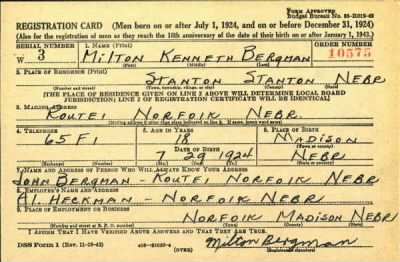 Form Approved
REGISTRATION CARD—(Men born on or after July 1, 1924, and on or before December 31, 1924)
(Also for the registration of men as they reach the 18th anniversary of the date of their birth on or after January 1, 1943.)
SERIAL NUMBER 1. NAME (Print) ORDER NUMBER
W 3 MILTON KENNETH BERGMAN 10575
2. PLACE OF RESIDENCE (Print)
STANTON STANTON NEBR
(Number and street) (Town, township, village, or city) (County) (State)
[THE PLACE OF RESIDENCE GIVEN ON LINE 2 ABOVE WILL DETERMINE LOCAL BOARD
JURISDICTION; LINE 2 OF REGISTRATION CERTIFICATE WILL BE IDENTICAL]
3. MAILING ADDRESS
ROUTE1 NORFOLK NEBR.
4. TELEPHONE 5. AGE IN YEARS 6. PLACE OF BIRTH
65F1 18 MADISON
DATE OF BIRTH (Town or county)
7 29 1924 NEBR
7. NAME AND ADDRESS OF PERSON WHO WILL ALWAYS KNOW YOUR ADDRESS
JOHN BERGMAN - ROUTE1 NORFOLK NEBR
8. EMPLOYER'S NAME AND ADDRESS
Al. HECKMAN - NORFOLK NEBR
9. PLACE OF EMPLOYMENT OR BUSINESS
NORFOLK MADISON NEBR
(Number and street or R. F. D. number) (Town) (County) (State)
I AFFIRM THAT I HAVE VERIFIED ABOVE ANSWERS AND THAT THEY ARE TRUE.
DSS Form 1 (Rev. 11-16-42) (OVER) Milton Bergman